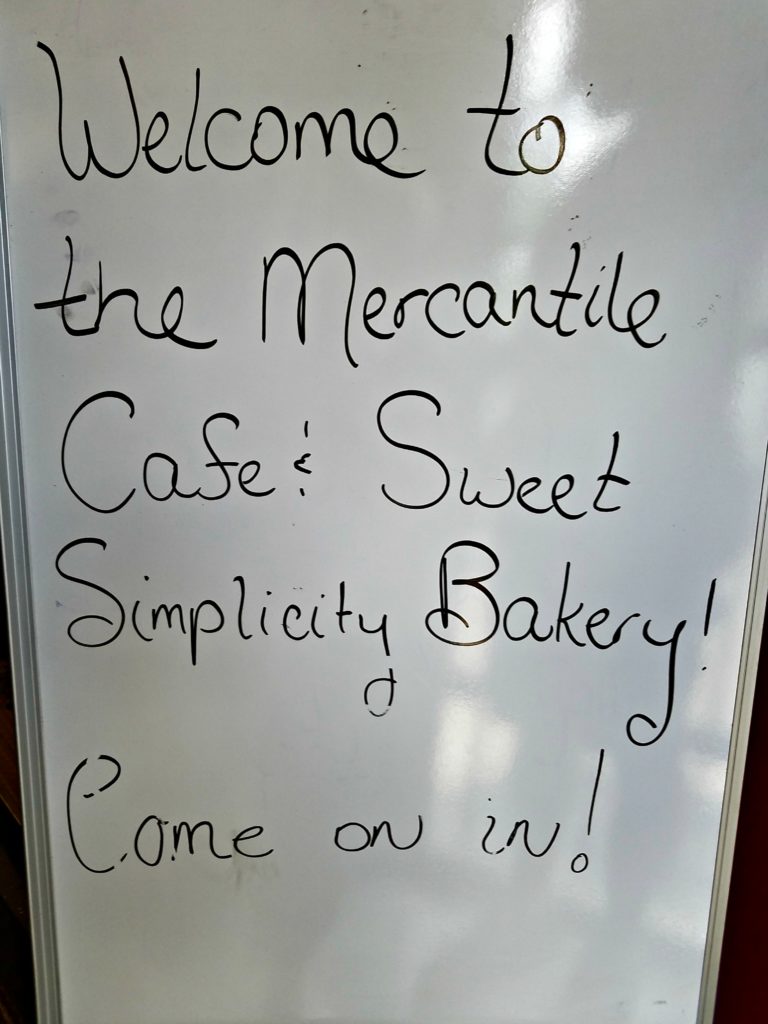 Welcome to
the Mercantile
Cafe & Sweet
Simplicity Bakery!
Come on in!